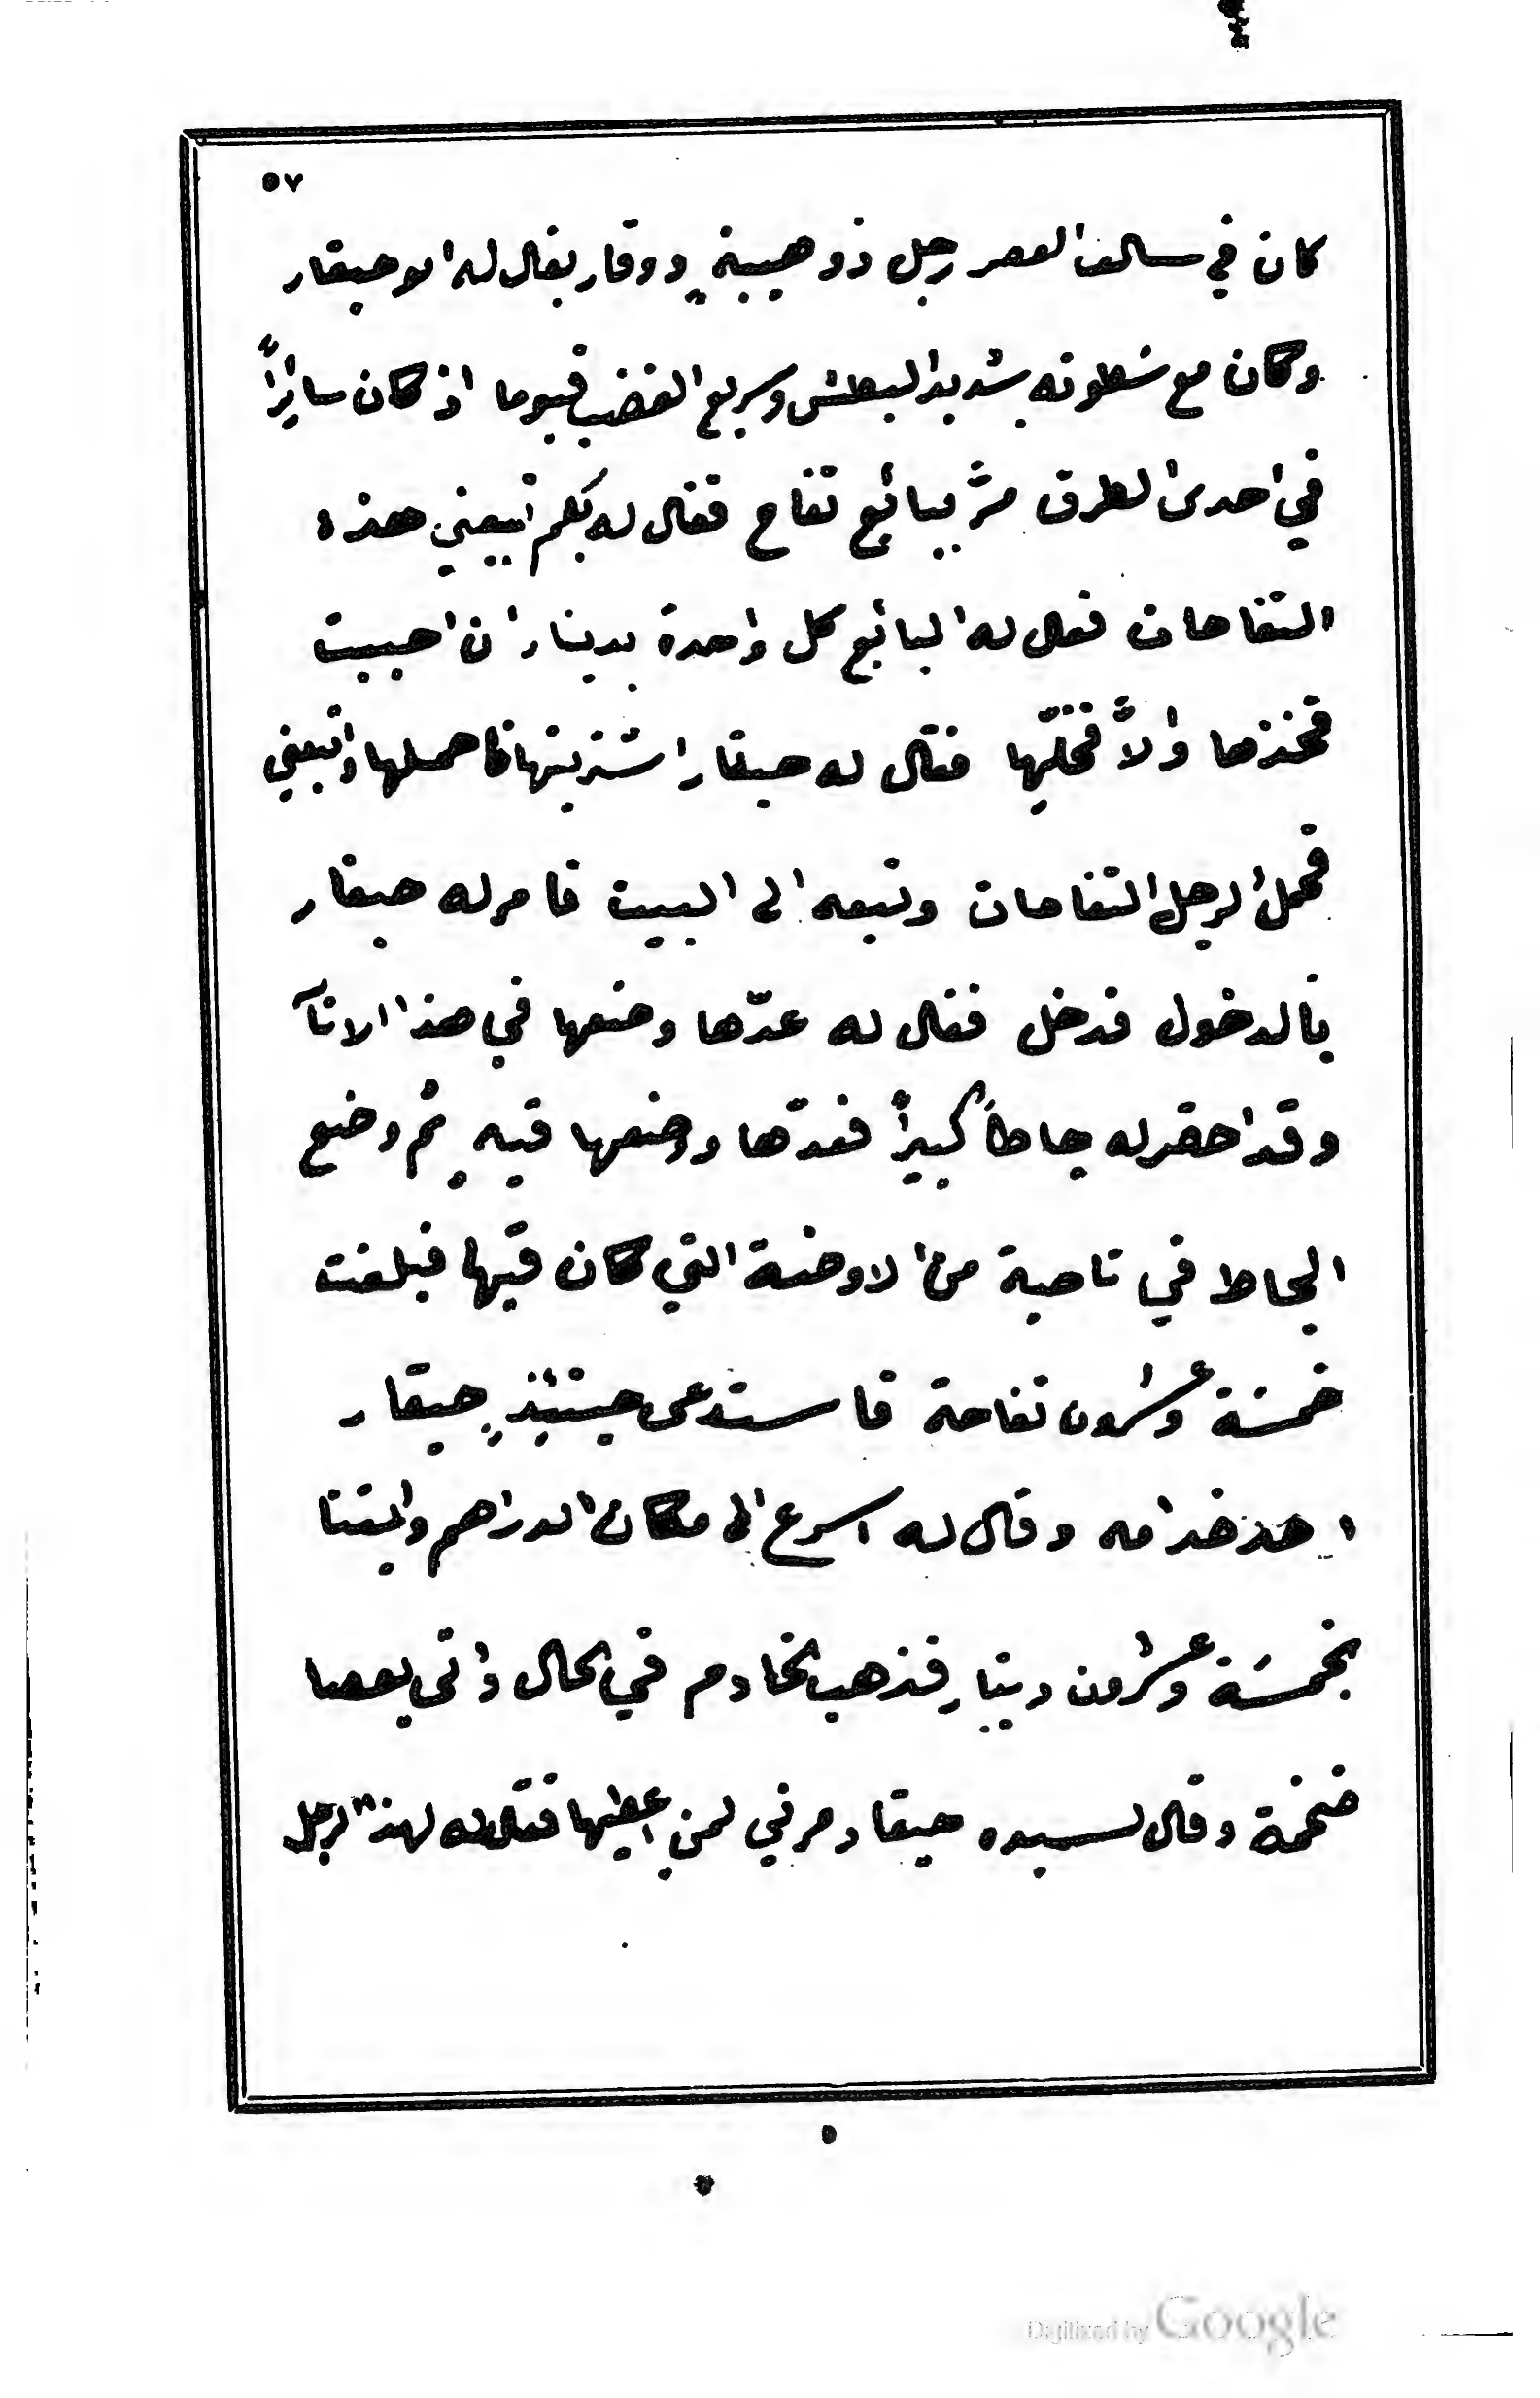 ٥٧
كان في سالف العصر رجل ذو هيبةٍ ووقار يقال له ابو حيقار
وكان مع سطوته شديد البطش وسريع الغضب فيوما اذ كان سائراً
في احدى الطرق مرَّ ببائع تفاح فقال له بكم تبيعني هذه
التفاحات فقال له البائع كل واحدة بدينار ان احببت
فخذها والاَّ فخلّها فقال له حيقار اشتريتها فاحملها واتبعني
فحمل الرجل التفاحات وتبعه الى البيت فامر له حيقار
بالدخول فدخل فقال له عدّها وضعها في هذا الانآ
وقد احضر له جاطاً كبيراً فعدّها ووضعها فيه ثم وضع
الجاط في ناحية من الاوضة التي كان فيها فبلغت
خمسة وعشرون تفاحة فاستدعى حينئذٍ حيقار
احد خدامه وقال له اسرع الى مكان الدراهم وايتنا
بخمسة وعشرون دينار فذهب الخادم في الحال واتى بعصا
ضخمة وقال لسيده حيقار مرني لمن اعطيها فقال له لهذا الرجل
Digitized by Google